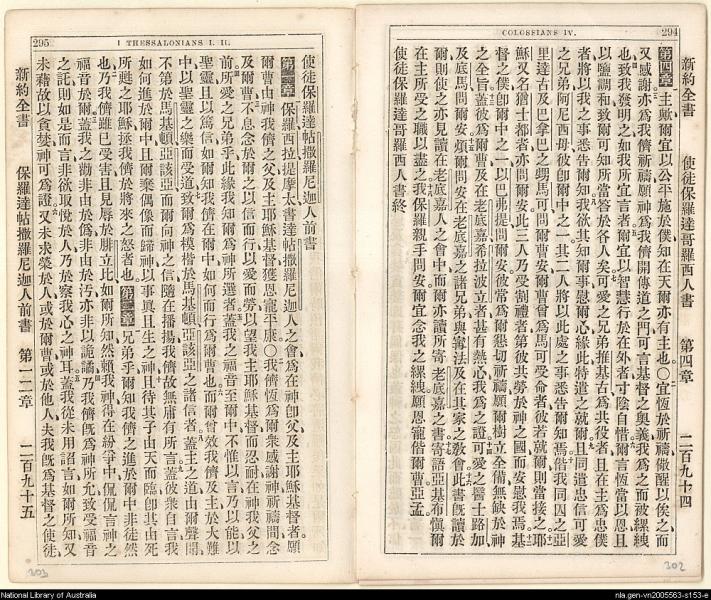 COLOSSIANS IV.
294
新約全書 使徒保羅達哥羅西人書 第四章 二百九十四
第四章 主歟爾宜以公平施於僕知在天爾亦有主也〇宜恆於祈禱儆醒以俟之而
又感謝亦爲我儕祈禱願神爲我儕開傳道之門可言基督之奧義我爲之而被縲絏
也致我發明之如我所宜言者爾宜以智慧行於在外者寸陰自惜爾言恆當以恩且
以鹽調和致爾可知所當答於各人矣可愛之兄弟推基古爲共役者且在主爲忠僕
者將以我之事悉告爾知我欲其知爾事慰爾心緣此特遣之就爾且同遣忠信可愛
之兄弟阿尼西母彼卽爾中之一其二人將以此處之事悉告爾知焉偕我同囚之亞
里達古及巴拿巴之甥馬可問爾曹安爾曹曾爲馬可受命者彼若就爾則當接之耶
穌又名猶士都者亦問爾安此三人乃受割禮者第彼共勞於神之國而安慰我焉基
督之僕卽爾中之一以巴弗提問爾安彼常爲爾懇切祈禱願爾樹立全備無缺於神
之全旨蓋彼爲爾曹及在老底嘉希拉波立者甚有熱心我爲之證可愛之醫士路加
及底馬問爾安煩爾問安在老底嘉之諸兄弟與甯法及在其家之敎會此書旣讀於
爾則使之亦見讀在老底嘉人之會中而爾亦讀所寄老底嘉之書寄語亞基布愼爾
在主所受之職以盡之我保羅親手問安爾宜念我之縲絏願恩寵偕爾曹亞孟
使徒保羅達哥羅西人書終
295
I THESSALONIANS I. II.
使徒保羅達帖撒羅尼迦人前書
第一章 保羅西拉提摩太書達帖撒羅尼迦人之會爲在神卽父及主耶穌基督者願
爾曹由神我儕之父及主耶穌基督獲恩寵平康〇我儕恆爲爾衆感謝神祈禱間念
及爾曹不息念於爾之以信而行以愛而勞以望我主耶穌基督而忍耐在神我父之
前所愛之兄弟乎此緣我知爾爲神所選者蓋我之福音至爾中不惟以言乃以能以
聖靈且以篤信如爾知我儕在爾中如何而行爲爾曹也而爾曾效我儕及主於大難
中以聖靈之樂而受道致爾爲模楷於馬基頓亞該亞之諸信者蓋主之道由爾聲聞
不第於馬基頓亞該亞而爾向神之信隨在播揚我儕故無庸有所言蓋彼衆自言我
如何進於爾中且爾棄偶像而歸神以事眞且生之神且待其子由天而臨卽其由死
所甦之耶穌拯我儕於將來之怒者也 第二章 兄弟乎爾知我儕之進於爾中非徒然
也乃我儕雖已受害且見辱於腓立比如爾所知然賴我神得在紛爭中侃侃言神之
福音於爾蓋我之勸非由於僞非由於汚亦非以詭譎乃我儕旣爲神所允致受福音
之託則如是而言非欲取悅於人乃於察我心之神耳蓋我從未用諂言如爾所知又
未藉故以貪婪神可爲證又未求榮於人或於爾曹或於他人夫我旣爲基督之使徒
保羅達帖撒羅尼迦人前書 第一二章 二百九十五
新約全書
303
302
National Library of Australia
nla.gen-vn2005563-s153-e